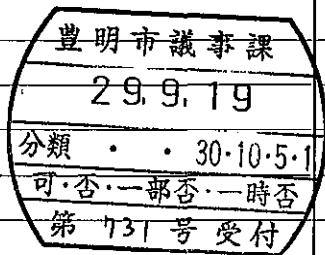 豊明市議事課
29.9.19
分類 ・ ・ 30・10・5・1
可・否・一部否・一時否
第 731 号 受付